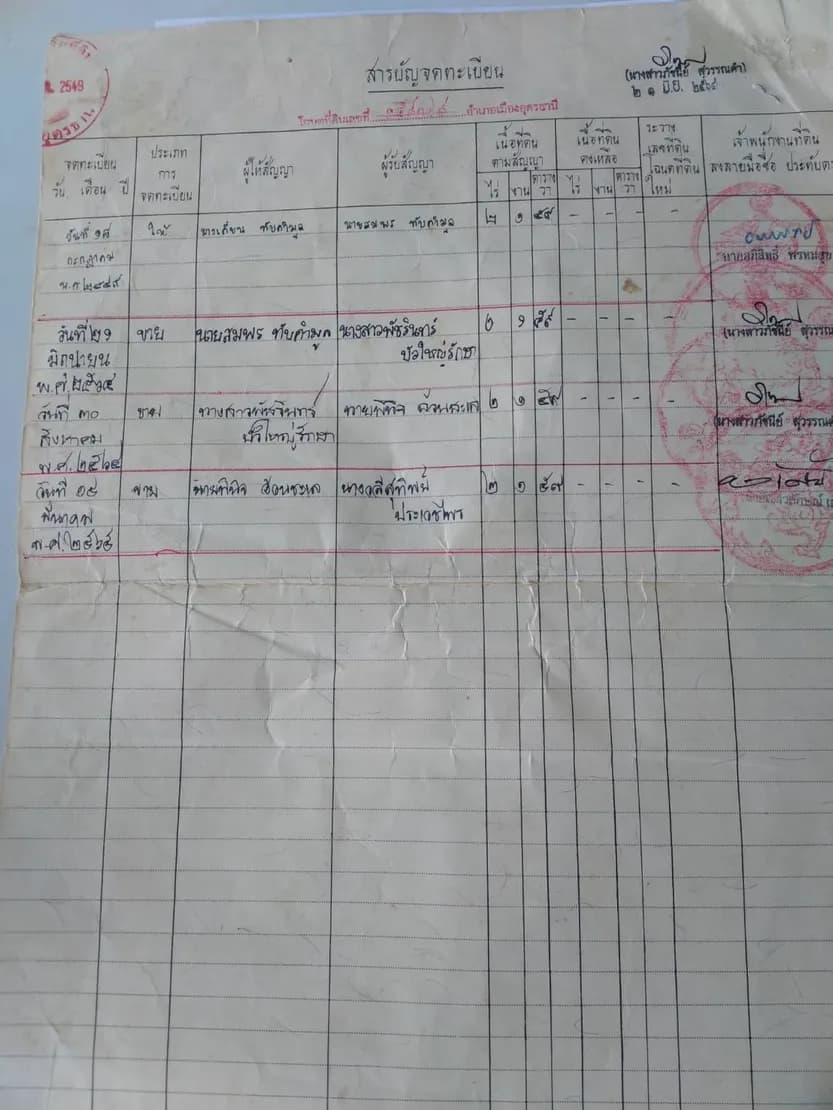 2549
สารบัญจดทะเบียน
(นางสาวภัชนีย์ สุวรรณคำ)
๒๑ มิ.ย. ๒๕๖๔
โฉนดที่ดินเลขที่ อำเภอเมืองอุดรธานี
จดทะเบียน
วัน เดือน ปี
ประเภท
การ
จดทะเบียน
ผู้ให้สัญญา
ผู้รับสัญญา
เนื้อที่ดิน
ตามสัญญา
ไร่ งาน ตาราง
วา
เนื้อที่ดิน
คงเหลือ
ไร่ งาน ตาราง
วา
ระวาง
เลขที่ดิน
โฉนดที่ดิน
ใหม่
เจ้าพนักงานที่ดิน
ลงลายมือชื่อ ประทับ
วันที่ ๑๘ ให้ ทับคำมูล นายสมพร ทับคำมูล ๒ ๑ ๕๙ - - - -
กรกฎาคม
พ.ศ ๒๕๔๙
วันที่ ๒๑ ขาย นายสมพร ทับคำมูล นางสาวพัชรินทร์ ๒ ๑ ๕๙ - - - -
(นางสาวภัชนีย์ สุวรรณ
มิถุนายน บัวใหญ่รักษา
พ.ศ. ๒๕๖๔
วันที่ ๓๐ ขาย นางสาวพัชรินทร์ นายพินิจ ๒ ๑ ๕๙ - - - -
(นางสาวภัชนีย์ สุวรรณคำ
สิงหาคม บัวใหญ่รักษา
พ.ศ. ๒๕๖๔
วันที่ ขาย นายพินิจ นางวลีสุทิพย์ ๒ ๑ ๕๙ - - - -
มีนาคม
พ.ศ. ๒๕๖๕